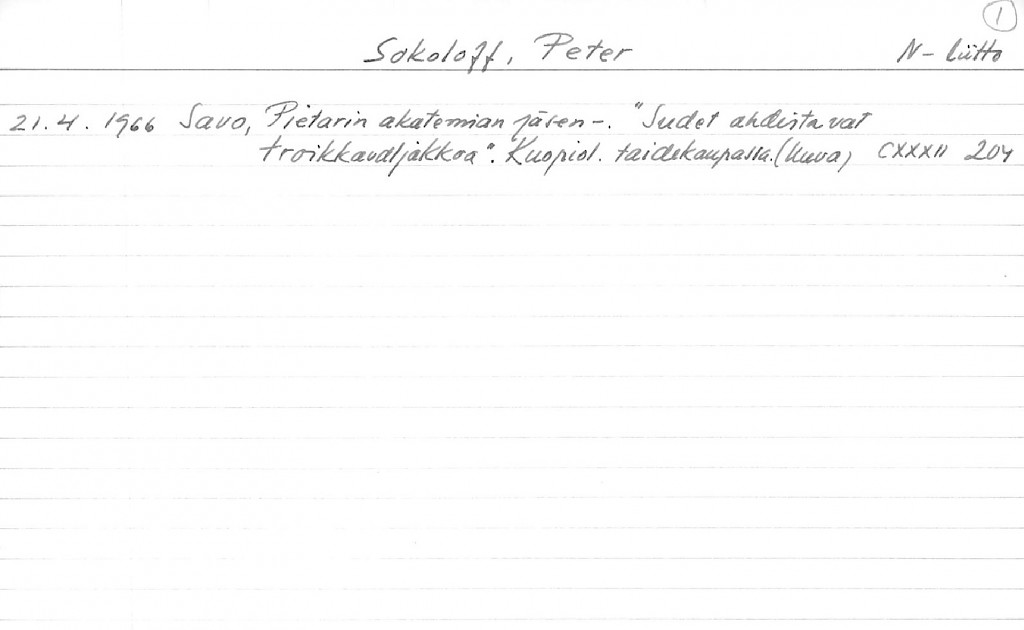 1
Sokoloff, Peter N-liitto
21.4.1966 Savo, Pietarin akatemian jäsen-. "Sudet ahdistavat
troikkavaljakkoa". Kuopiol. taidekaupassa. (kuva) CXXXII 204